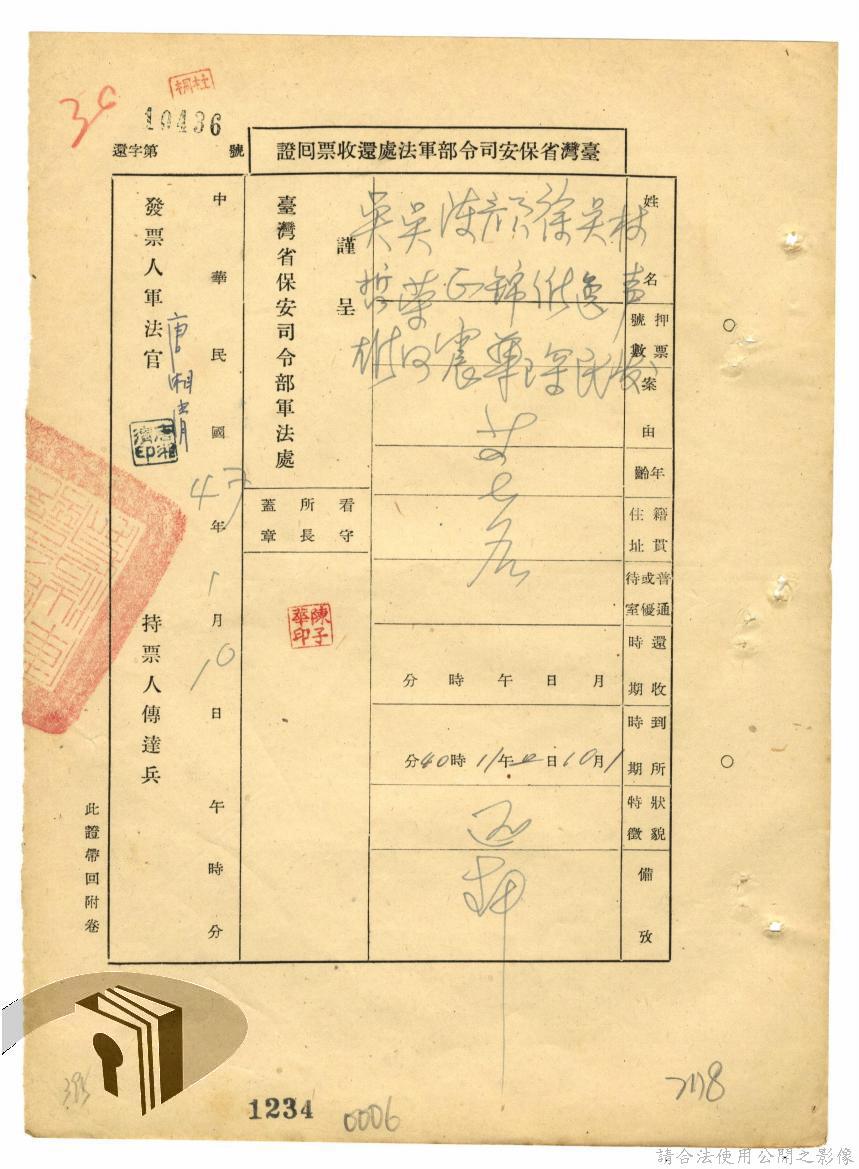 10436
還字第 號
臺灣省保安司令部軍法處還收票回證
姓名
林声發
吳逸民
徐
顏錦華
陳正宸
吳榮
吳哲雄
押票號數
案由
年齡
籍貫住址
普通或優待室
還收時期
月 日 午 時 分
到所時期
1月10日 午11時40分
狀貌特徵
備攷
共七名
還押
謹呈
臺灣省保安司令部軍法處
看守所長蓋章
陳子華印
中華民國 年1月10日 午 時 分
發票人軍法官
唐湘清
唐湘清印
持票人傳達兵
此證帶回附卷
1234
0006
請合法使用公開之影像